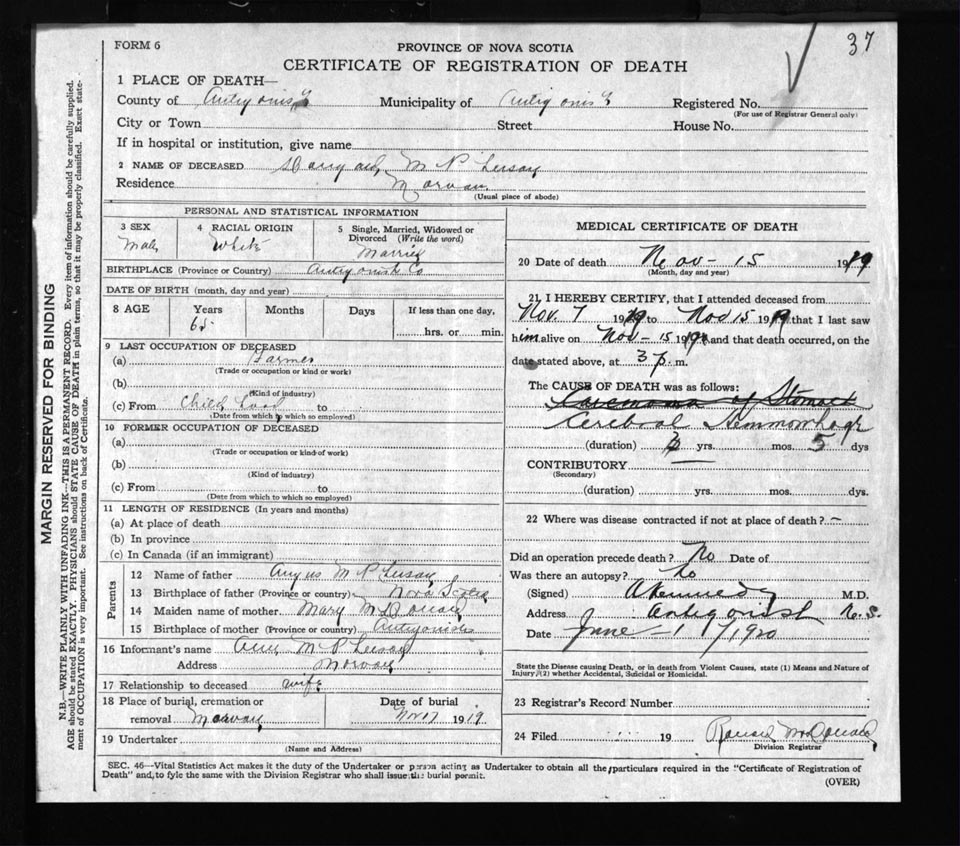 37
FORM 6
PROVINCE OF NOVA SCOTIA
CERTIFICATE OF REGISTRATION OF DEATH
1 PLACE OF DEATH—
County of Antigonish Municipality of Antigonish Registered No.
(For use of Registrar General only)
City or Town Street House No.
If in hospital or institution, give name
2 NAME OF DECEASED McPherson
Residence Morvan
(Usual place of abode)
PERSONAL AND STATISTICAL INFORMATION
3 SEX Male
4 RACIAL ORIGIN White
5 Single, Married, Widowed or Divorced (Write the word) Married
BIRTHPLACE (Province or Country) Antigonish Co
DATE OF BIRTH (month, day and year)
8 AGE Years 65 Months Days If less than one day, hrs. or min.
9 LAST OCCUPATION OF DECEASED
(a) Farmer
(Trade or occupation or kind or work)
(b)
(Kind of industry)
(c) From Child hood to
(Date from which to which so employed)
10 FORMER OCCUPATION OF DECEASED
(a)
(Trade or occupation or kind of work)
(b)
(Kind of industry)
(c) From to
(Date from which to which so employed)
11 LENGTH OF RESIDENCE (In years and months)
(a) At place of death
(b) In province
(c) In Canada (if an immigrant)
Parents
12 Name of father Angus McPherson
13 Birthplace of father (Province or country) Nova Scotia
14 Maiden name of mother Mary McDonald
15 Birthplace of mother (Province or country) Antigonish
16 Informant's name McPherson
Address Morvan
17 Relationship to deceased wife
18 Place of burial, cremation or removal Morvan
Date of burial Nov 17 1919
19 Undertaker
(Name and Address)
MEDICAL CERTIFICATE OF DEATH
20 Date of death Nov - 15 1919
(Month, day and year)
21 I HEREBY CERTIFY, that I attended deceased from
Nov. 7 1919 to Nov 15 1919 that I last saw
him alive on Nov - 15 1919 and that death occurred, on the
date stated above, at 3 p. m.
The CAUSE OF DEATH was as follows:
Carcinoma of Stomach
Cerebral Hemmorhage
(duration) yrs. mos. 5 dys
CONTRIBUTORY —
(Secondary)
(duration) yrs. mos. dys.
22 Where was disease contracted if not at place of death? —
Did an operation precede death? No Date of
Was there an autopsy? No
(Signed) A Kennedy M.D.
Address Antigonish N.S.
Date June - 1 / 1920
State the Disease causing Death, or in death from Violent Causes, state (1) Means and Nature of
Injury (2) whether Accidental, Suicidal or Homicidal.
23 Registrar's Record Number
24 Filed 19 Ronald McDonald
Division Registrar
SEC. 46—Vital Statistics Act makes it the duty of the Undertaker or person acting as Undertaker to obtain all the particulars required in the "Certificate of Registration of
Death" and to fyle the same with the Division Registrar who shall issue the burial permit.
(OVER)
MARGIN RESERVED FOR BINDING
N.B.—WRITE PLAINLY WITH UNFADING INK—THIS IS A PERMANENT RECORD. Every item of information should be carefully supplied.
AGE should be stated EXACTLY. PHYSICIANS should STATE CAUSE OF DEATH in plain terms, so that it may be properly classified. Exact state-
ment of OCCUPATION is very important. See instructions on back of Certificate.